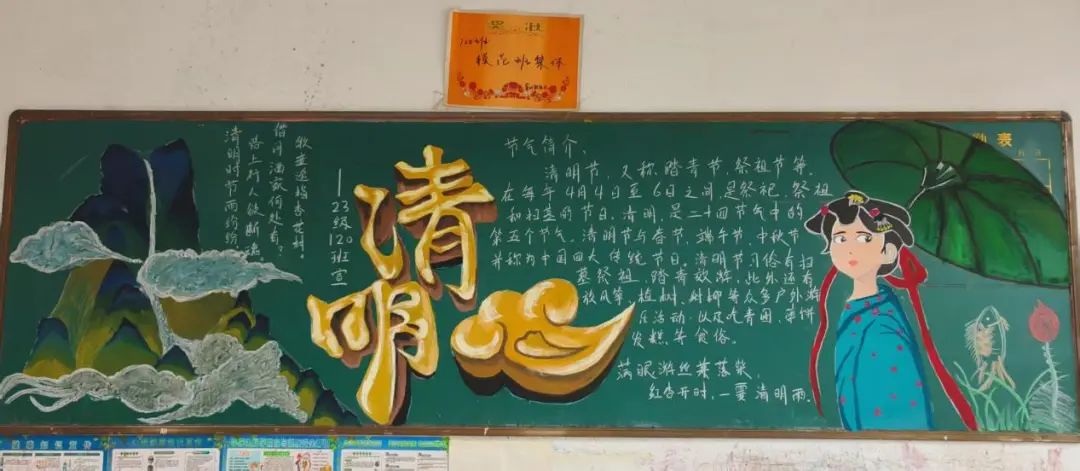 模范班集体
清明时节雨纷纷
路上行人欲断魂
借问酒家何处有?
牧童遥指杏花村。
—23级120班宣
清明
节气简介、
清明节,又称踏青节,祭祖节等.
在每年4月4日至6日之间,是祭祀、祭祖
和扫墓的节日.清明,是二十四节气中的
第五个节气。清明节与春节、端午节、中秋节
并称为中国四大传统节日。清明节习俗有扫
墓祭祖、踏青放游,此外还有
放风筝、植树、射柳等众多户外游
乐活动.以及吃青团、薄饼
发糕等食俗。
满眼游丝兼落絮,
红杏开时,一霎清明雨.
表